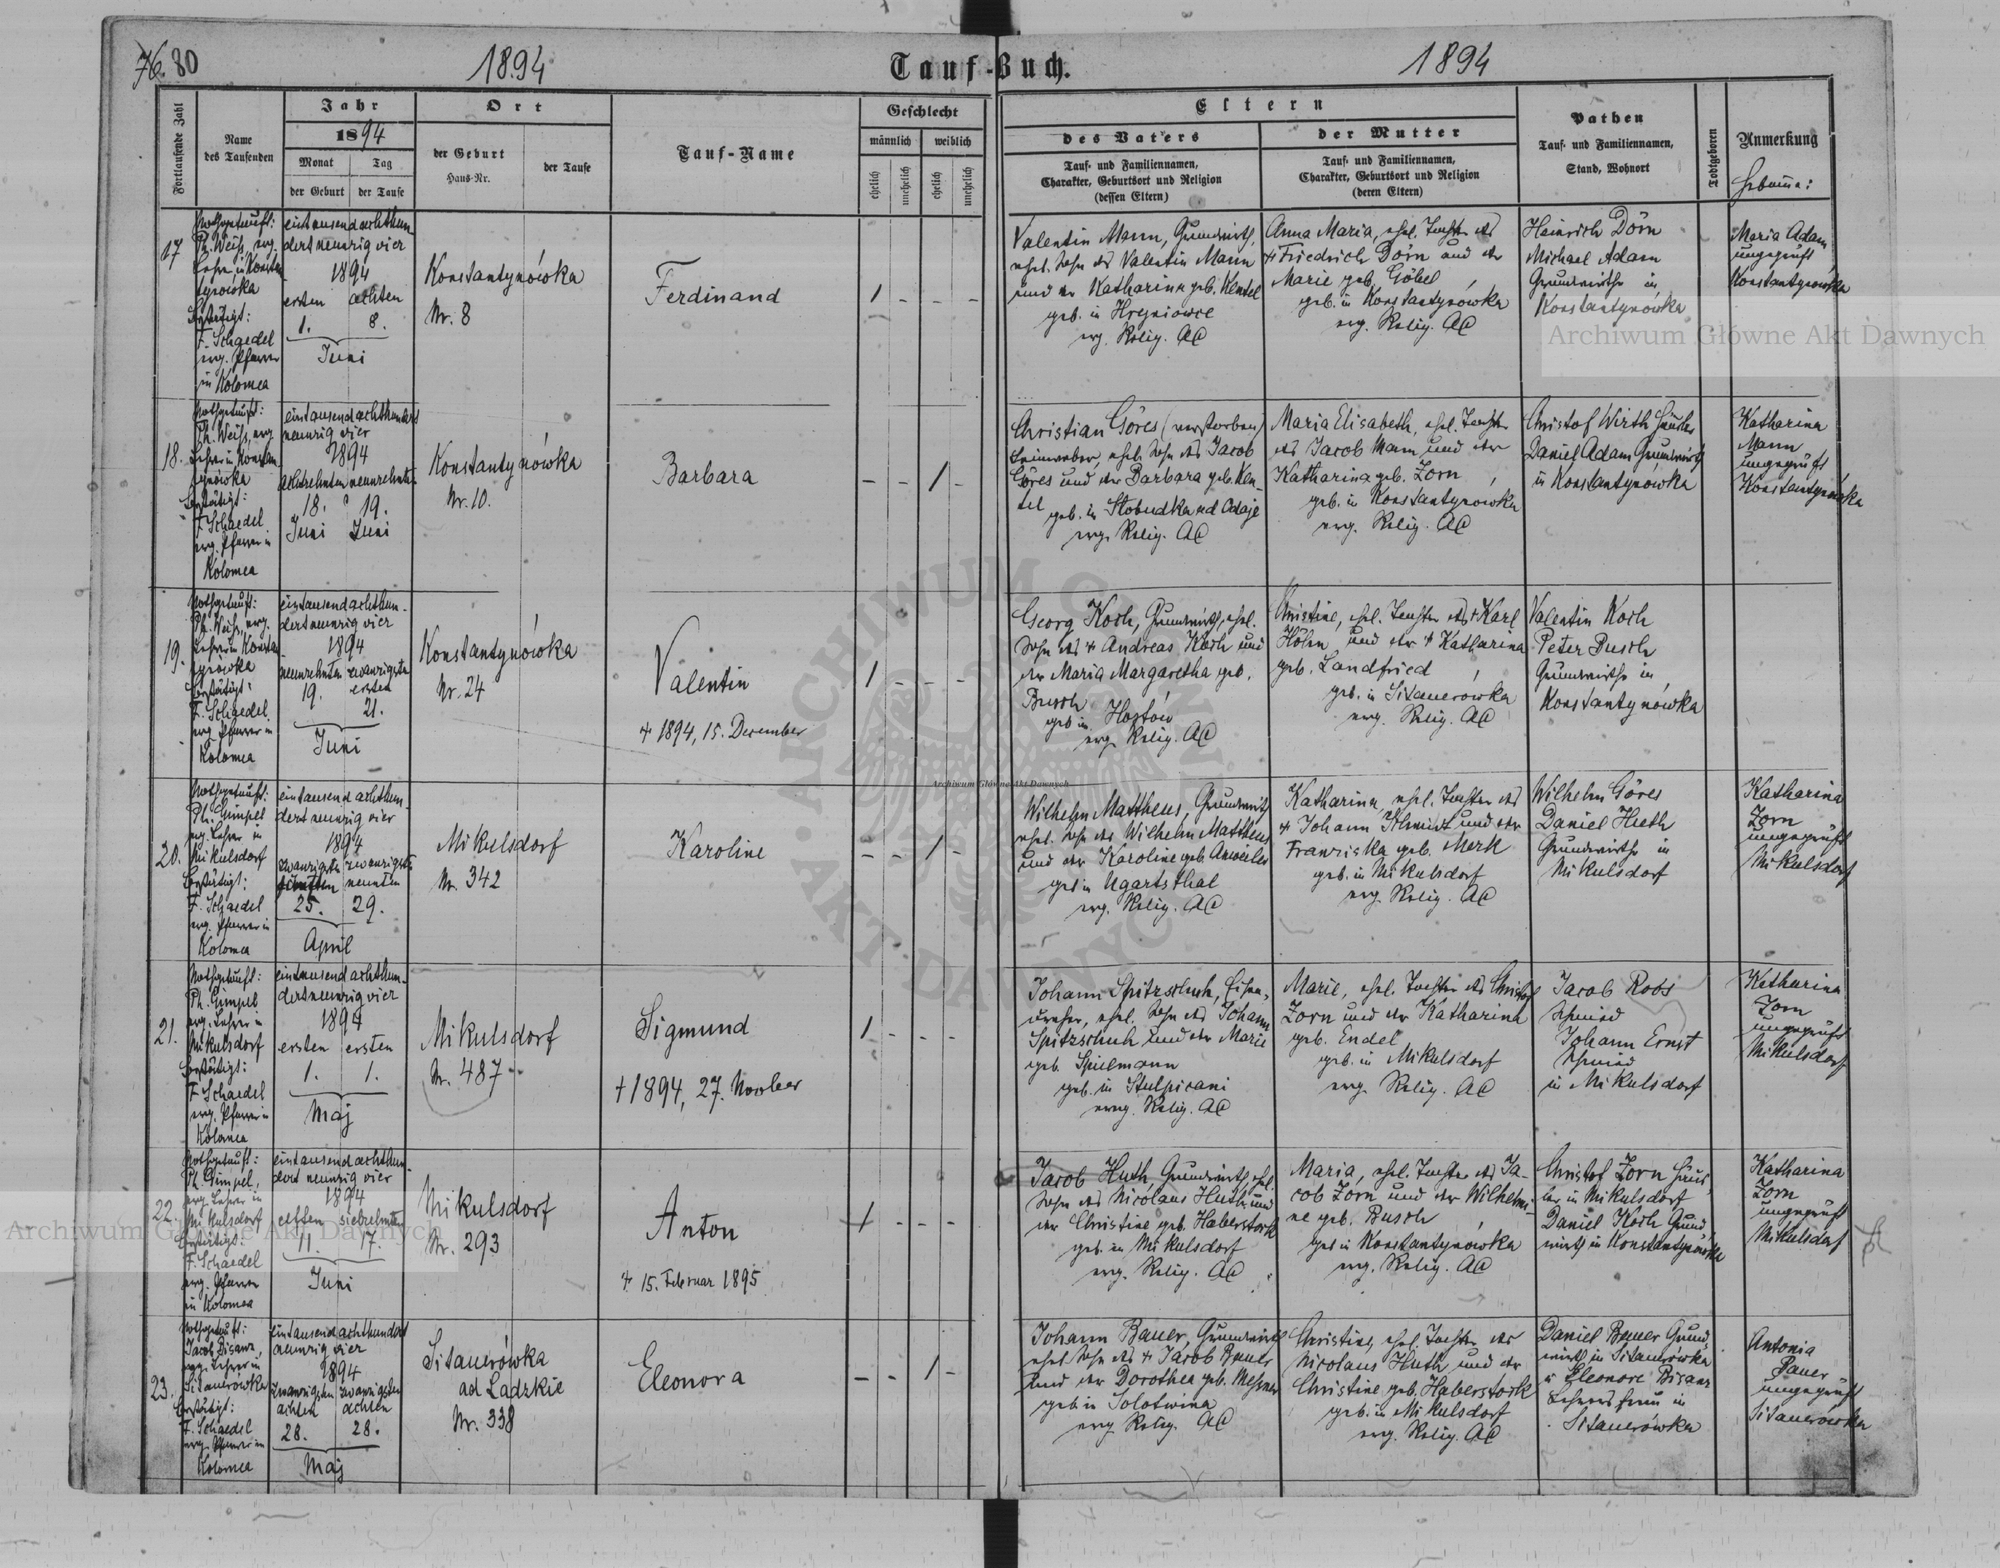 76. 80
1894
Tauf-Buch.
1894
Fortlaufende Zahl
Name
des Taufenden
Jahr
1894
Monat
Tag
der Geburt
der Taufe
Ort
der Geburt
Haus-Nr.
der Taufe
Tauf-Name
Geschlecht
männlich
weiblich
ehelich
unehelich
ehelich
unehelich
Eltern
des Vaters
Tauf- und Familiennamen,
Charakter, Geburtsort und Religion
(dessen Eltern)
der Mutter
Tauf- und Familiennamen,
Charakter, Geburtsort und Religion
(deren Eltern)
Pathen
Tauf- und Familiennamen,
Stand, Wohnort
Todtgeboren
Anmerkung
17
Nothgetauft:
Ph. Weiß, evg.
Lehrer in Konstan
tynowka
Bestätigt:
F. Schaedel
evg. Pfarrer
in Kolomea
eintausendachthun-
dertneunzigvier
1894
ersten achten
1. 8.
Juni
Konstantynówka
Nr. 8
Ferdinand
1 - - -
Valentin Mann, Grundwirth,
ehel. Sohn des Valentin Mann
und der Katharina geb. Kentel
geb. in Hryniowce
evg. Relig. AC
Anna Maria, ehel. Tochter des
+ Friedrich Dörn und der
Marie geb. Göbel
geb. in Konstantynówka
evg. Relig. AC
Heinrich Dörn
Michael Adam
Grundwirthe in
Konstantynówka
Maria Adam
ungeprüft
Konstantynówka
18.
Nothgetauft:
Ph. Weiß, evg
Lehrer in Konstan
tynówka
Bestätigt:
F. Schaedel
evg. Pfarrer in
Kolomea
eintausendachthundert
neunzig vier
1894
achtzehnten neunzehnten
18. 19.
Juni Juni
Konstantynówka
Nr. 10.
Barbara
- - 1 -
Christian Göres (verstorben)
Leinweber, ehel. Sohn des Jacob
Göres und der Barbara geb. Ken-
tel
geb. in Slobudka ad Odaje
evg. Relig. AC
Maria Elisabeth, ehel. Tochter
des Jacob Mann und der
Katharina geb. Zorn
geb. in Konstantynowka
evg. Relig. AC
Christof Wirth Häusler
Daniel Adam Grundwirth
in Konstantynówka
Katharina
Mann
ungeprüft
Konstantynówka
19.
Nothgetauft:
Ph. Weiß, evg.
Lehrer in Konstan
tynówka
Bestätigt:
F. Schaedel
evg. Pfarrer in
Kolomea
eintausendachthun-
dertneunzig vier
1894
neunzehnten zwanzigsten
19. ersten
21.
Juni
Konstantynówka
Nr. 24
Valentin
+ 1894, 15. December
1 - - -
Georg Koch, Grundwirth, ehel.
Sohn des + Andreas Koch und
der Maria Margaretha geb.
Busch
geb in Hostów
evg. Relig. AC
Christine, ehel. Tochter des + Karl
Höhn und der + Katharina
geb. Landfried
geb. in Sitauerówka
evg. Relig. AC
Valentin Koch
Peter Busch
Grundwirthe in
Konstantynówka
20.
Nothgetauft:
Ph. Gimpel
evg. Lehrer in
Mikulsdorf
Bestätigt:
F. Schaedel
evg. Pfarrer in
Kolomea
eintausend achthun-
dert neunzig vier
1894
zwanzigsten zwanzigsten
fünften neunten
25. 29.
April
Mikulsdorf
Nr. 342
Karoline
- - 1 -
Wilhelm Mattheus, Grundwirth
ehel. Sohn des Wilhelm Mattheus
und der Karoline geb. Anweiler
geb in Ugartsthal
evg. Relig. AC
Katharina, ehel. Tochter des
+ Johann Schmidt und der
Franziska geb. Merk
geb. in Mikulsdorf
evg. Relig. AC
Wilhelm Göres
Daniel Huth
Grundwirthe in
Mikulsdorf
Katharina
Zorn
ungeprüft
Mikulsdorf
21.
Nothgetauft:
Ph. Gimpel
evg. Lehrer in
Mikulsdorf
Bestätigt:
F. Schaedel
evg. Pfarrer in
Kolomea
eintausend achthun-
dertneunzigvier
1894
ersten ersten
1. 1.
Maj
Mikulsdorf
Nr. 487
Sigmund
+ 1894, 27. Novber
1 - - -
Johann Spitzschuh, Eisen-
dreher, ehel. Sohn des Johann
Spitzschuh und der Marie
geb. Spielmann
geb. in Stulpicani
evg. Relig. AC
Marie, ehel. Tochter des Christof
Zorn und der Katharina
geb. Endel
geb. in Mikulsdorf
evg. Relig. AC
Jacob Robs
Schmied
Johann Ernst
Schmied
in Mikulsdorf
Katharina
Zorn
ungeprüft
Mikulsdorf
22.
Nothgetauft:
Ph. Gimpel,
evg. Lehrer in
Mikulsdorf
Bestätigt:
F. Schaedel
evg. Pfarrer
in Kolomea
eintausend achthun-
dert neunzig vier
1894
elften siebzehnten
11. 17.
Juni
Mikulsdorf
Nr. 293
Anton
+ 15. Februar 1895
1 - - -
Jacob Huth Grundwirth, ehel.
Sohn des Nicolaus Huth und
der Christine geb. Haberstock
geb. in Mikulsdorf
evg. Relig. AC
Maria, ehel. Tochter des Ja-
cob Zorn und der Wilhelmi-
ne geb. Busch
geb in Konstantynówka
evg. Relig. AC
Christof Zorn Häus-
ler in Mikulsdorf
Daniel Koch Grund-
wirth in Konstantynówka
Katharina
Zorn
ungeprüft
Mikulsdorf
23.
Nothgetauft:
Jacob Bisanz,
evg. Lehrer in
Sitauerówka
Bestätigt:
F. Schaedel
evg. Pfarrer in
Kolomea
eintausendachthundert
neunzig vier
1894
zwanzigsten zwanzigsten
achten achten
28. 28.
Maj
Sitauerówka
ad Ladzkie
Nr. 338
Eleonora
- - 1 -
Johann Bauer, Grundwirth
ehel Sohn des + Jacob Bauer
und der Dorothea geb. Messner
geb in Solotwina
evg Relig. AC
Christine, ehel. Tochter des
Nicolaus Huth und der
Christine geb. Haberstock
geb. in Mikulsdorf
evg. Relig. AC
Daniel Bauer Grund-
wirth in Sitauerówka
u Eleonore Bisanz
Lehrersfrau in
Sitauerówka
Antonia
Bauer
ungeprüft
Sitauerówka
Archiwum Główne Akt Dawnych
Archiwum Główne Akt Dawnych
Archiwum Główne Akt Dawnych